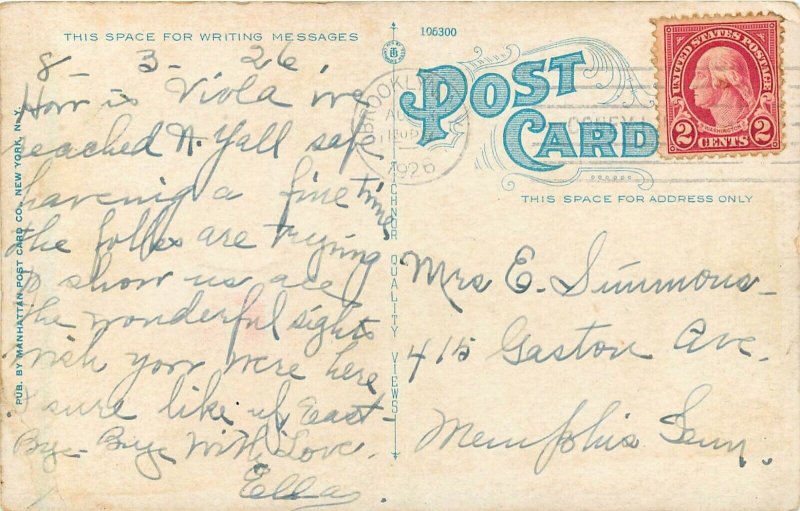 THIS SPACE FOR WRITING MESSAGES
8 - 3 - 26
How is Viola we
reached N. Y all safe
havenig a fine time
the folks are trying
to show us all
the wonderful sights
wish you were here
I sure like up East -
Bye - Bye With Love.
Ella
PUB. BY MANHATTAN POST CARD CO., NEW YORK, N.Y.
TICHNOR QUALITY VIEWS
106300
POST CARD
BROOKLYN
1926
UNITED STATES POSTAGE
WASHINGTON
2 CENTS 2
THIS SPACE FOR ADDRESS ONLY
Mrs E. Simmons -
415 Gaston Ave.
Memphis Tenn.